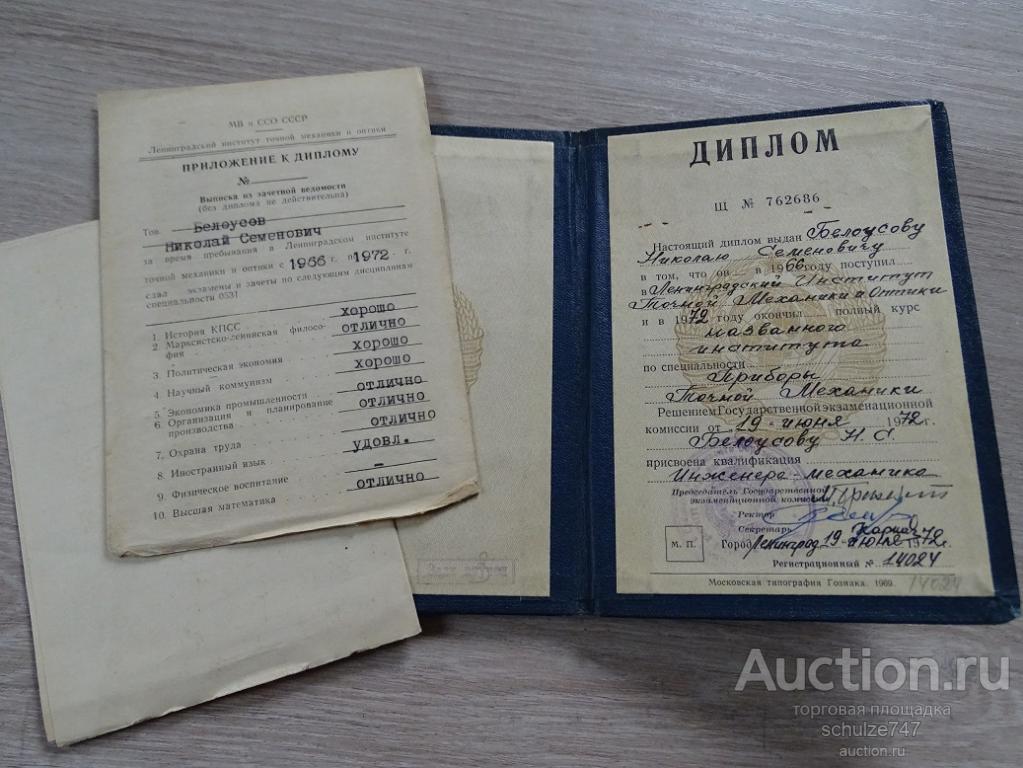 МВ и ССО СССР
Ленинградский институт точной механики и оптики
ПРИЛОЖЕНИЕ К ДИПЛОМУ
№
Выписка из зачетной ведомости
(без диплома не действительна)
Тов. Белоусов
Николай Семенович
за время пребывания в Ленинградском институте
точной механики и оптики с 1966 г. п 1972 г.
сдал экзамены и зачеты по следующим дисциплинам
специальности 0531
1. История КПСС хорошо
2. Марксистско-ленинская филосо-
фия отлично
3. Политическая экономия хорошо
4. Научный коммунизм хорошо
5. Экономика промышленности отлично
6. Организация и планирование
производства отлично
7. Охрана труда отлично
8. Иностранный язык удовл.
9. Физическое воспитание –
10. Высшая математика отлично
ДИПЛОМ
Щ № 762686
Настоящий диплом выдан Белоусову
Николаю Семеновичу
в том, что он в 1966 году поступил
в Ленинградский Институт
Точной Механики и Оптики
и в 1972 году окончил полный курс
названного
института
по специальности
Приборы
Точной Механики
Решением Государственной экзаменационной
комиссии от 19 июня 1972 г.
Белоусову Н. С.
присвоена квалификация
Инженера-механика
Председатель Государственной
экзаменационной комиссии
Ректор
Секретарь
М. П.
Город Ленинград 19 июля 1972 г.
Регистрационный № 14024
Московская типография Гознака. 1969.
14024
Auction.ru
торговая площадка
schulze747
auction.ru